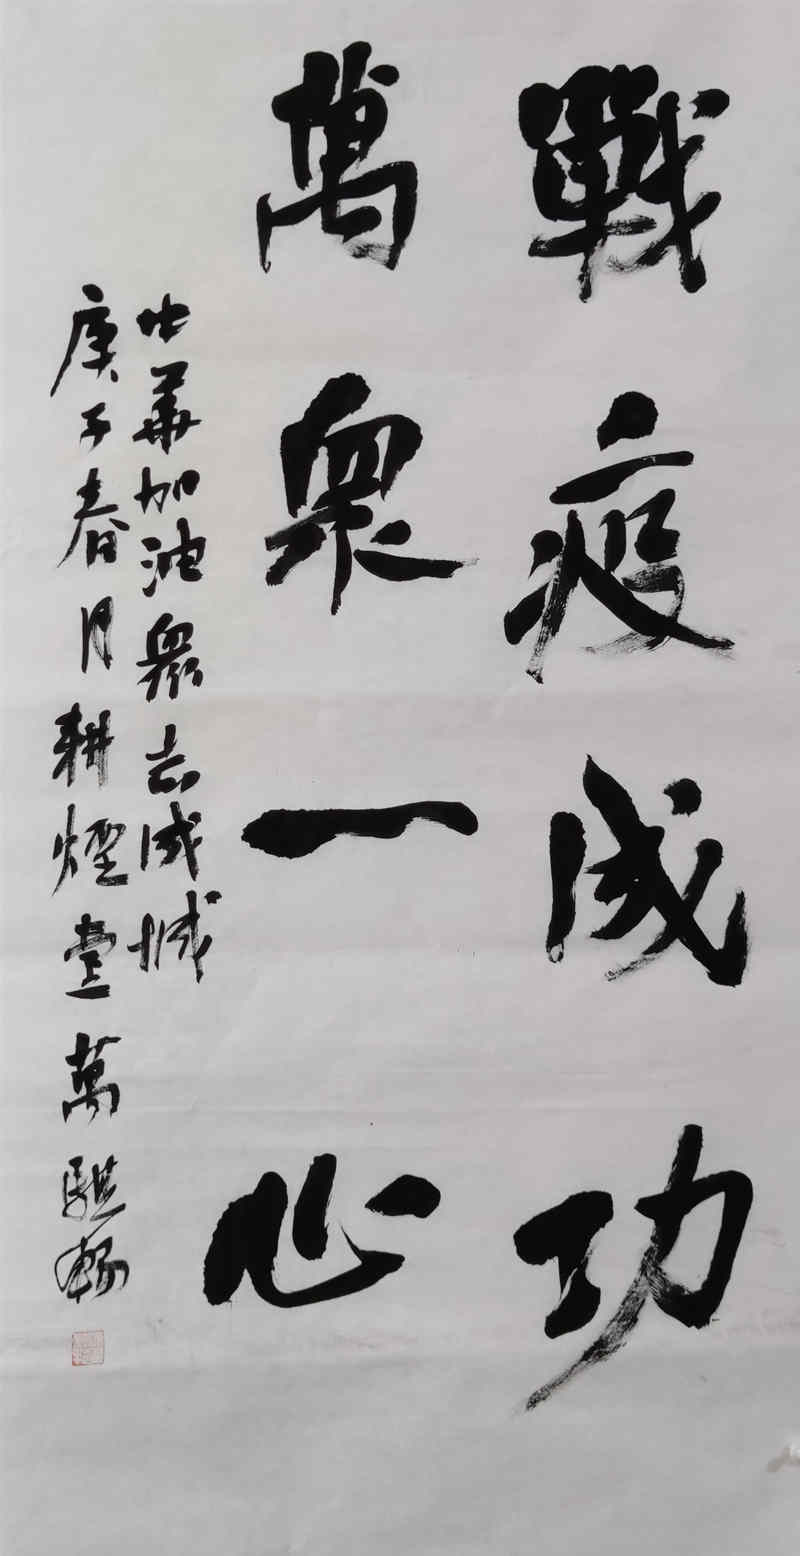 戰疫成功
萬眾一心
中華加油衆志成城
庚子春月耕煙堂萬騏